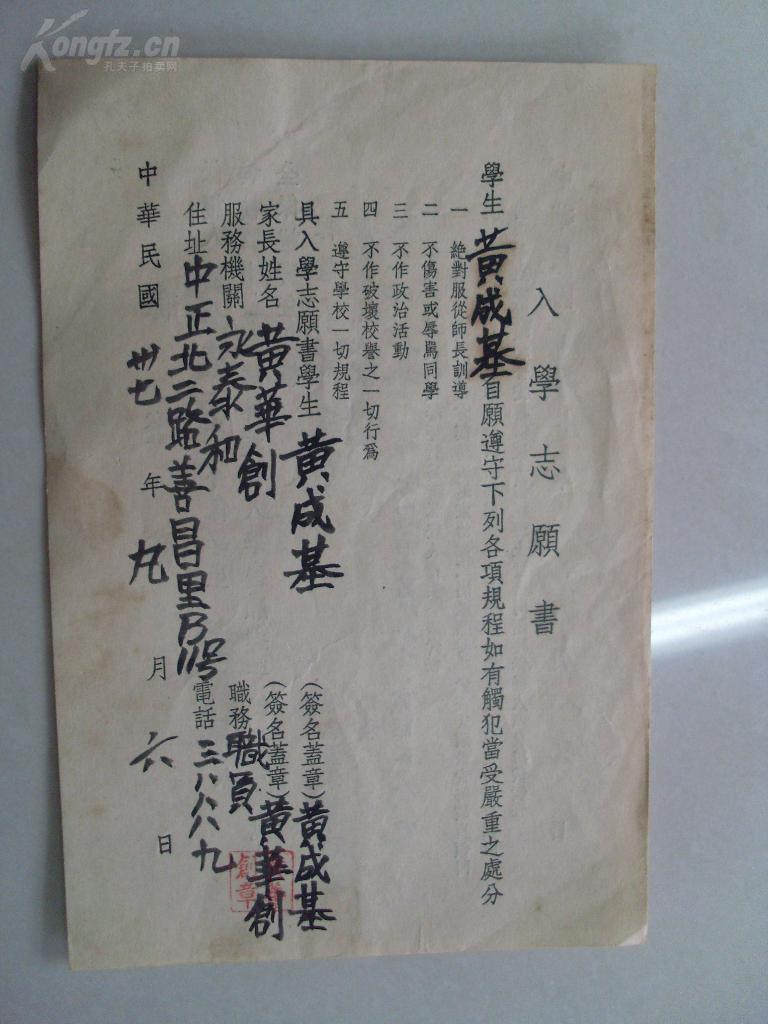 Kongfz.cn
孔夫子拍卖网
入學志願書
學生 黃成基 自願遵守下列各項規程如有觸犯當受嚴重之處分
一 絕對服從師長訓導
二 不傷害或辱罵同學
三 不作政治活動
四 不作破壞校譽之一切行爲
五 遵守學校一切規程
具入學志願書學生 黃成基 (簽名蓋章) 黃成基
家長姓名 黃華創 (簽名蓋章) 黃華創
服務機關 永泰和 職務 職員
住址 中正北二路善昌里B11号 電話 三八八八九
中華民國 卅七 年 九 月 六 日